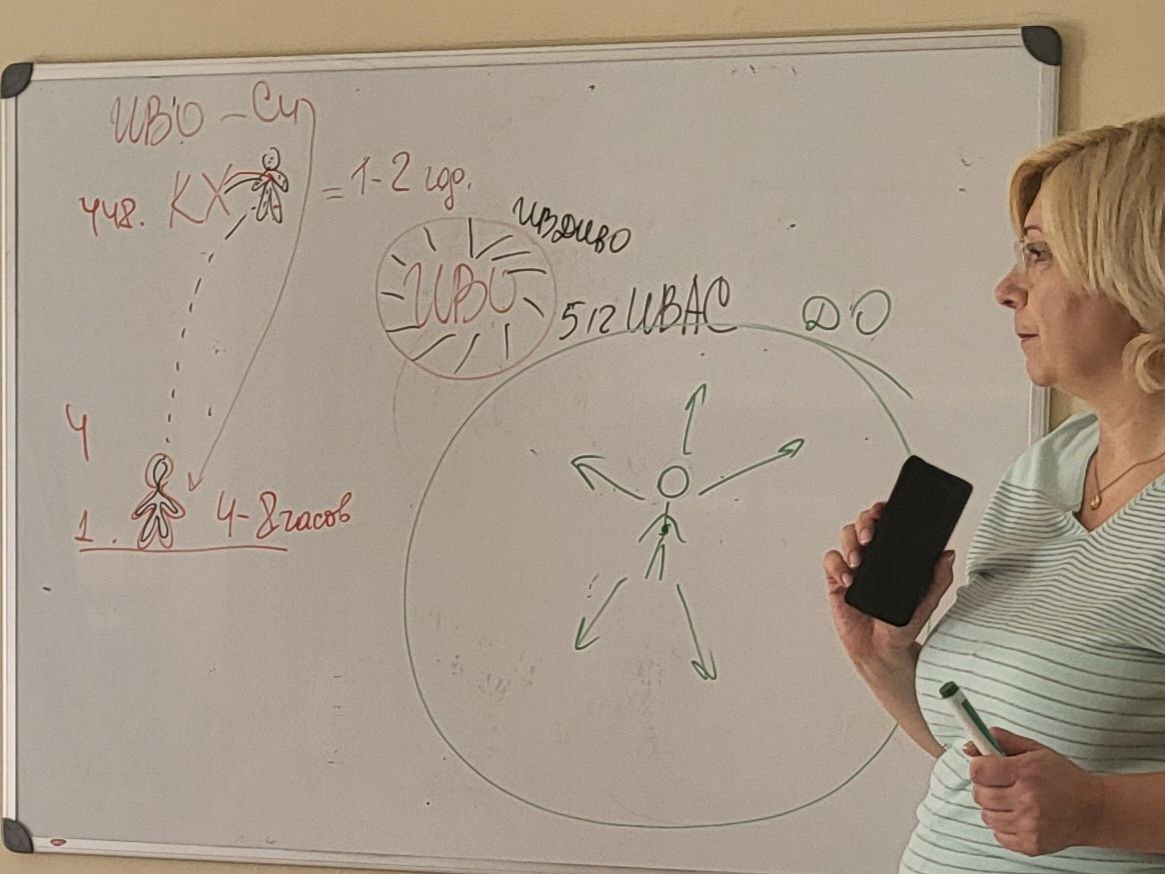 ИВО – Си
448. КХ = 1-2 год.
ИВДИВО
ИВО
512 ИВАС
ДО
Ч
1. 4-8 часов